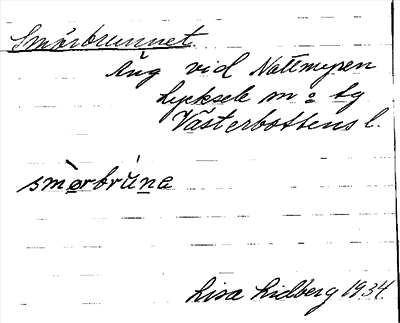 Smörbrunnet.
Äng vid Nattmyren
Lycksele m o tg
Västerbottens l.
smø̀rbrúna
Lisa Lidberg 1934.